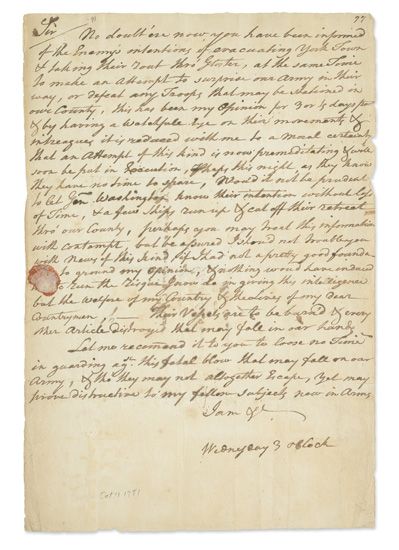 77
Sir No doubt ere now you have been informed
of the Enemys intentions of evacuating York Town
& taking their rout thro' Gloster, as the same Time
to make an Attempt to surprise our Army in their
way, or defeat any Troops that may be stationed in
our County, this has been my Opinion for 3 or 4 days past
& by having a Watchfull Eye on their movements &
intreagues it is reduced with me to a Moral certainty
that an Attempt of this kind is now premeditating & will
soon be put in Execution, this night as they know
they have no time to spare, Would it not be prudent
to let Gen Washington know their intention without loss
of Time, & a few Ships run up & cut off their retreat
thro' our County, perhaps you may treat this information
with contempt, but be assured I should not trouble you
with News of this kind if I had not a pretty good founda
to ground my Opinion, & nothing woud have induced
to run the risque I now do in giving this intelligence
but the welfare of my Country & the lives of my dear
Countrymen, Their Vessels are to be burned & every
other Article Distroyed that may fall in our hands
Let me recomend it to you to loose no Time
in guarding agt. this fatal blow that may fall on our
Army, & tho they may not altogether Escape, yet may
prove distructive to my fellow Subjects now in Arms
I am &c.
Wednesday 3 oClock
Oct 17 1781